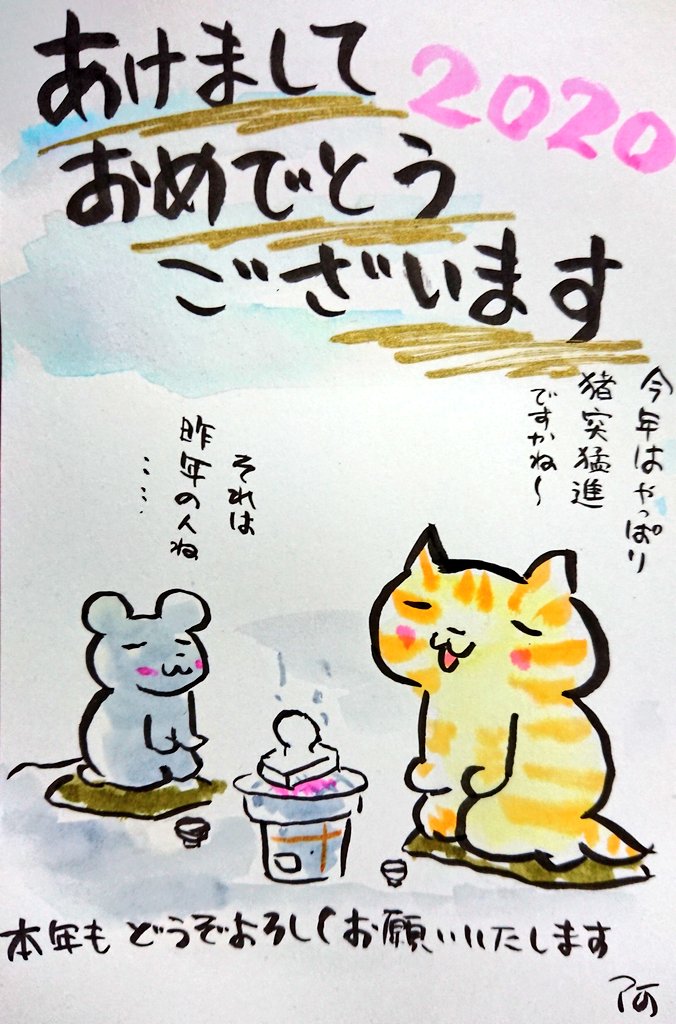 あけまして
2020
おめでとう
ございます
今年はやっぱり
猪突猛進
ですかね〜
それは
昨年の人ね
……
本年もどうぞよろしくお願いいたします